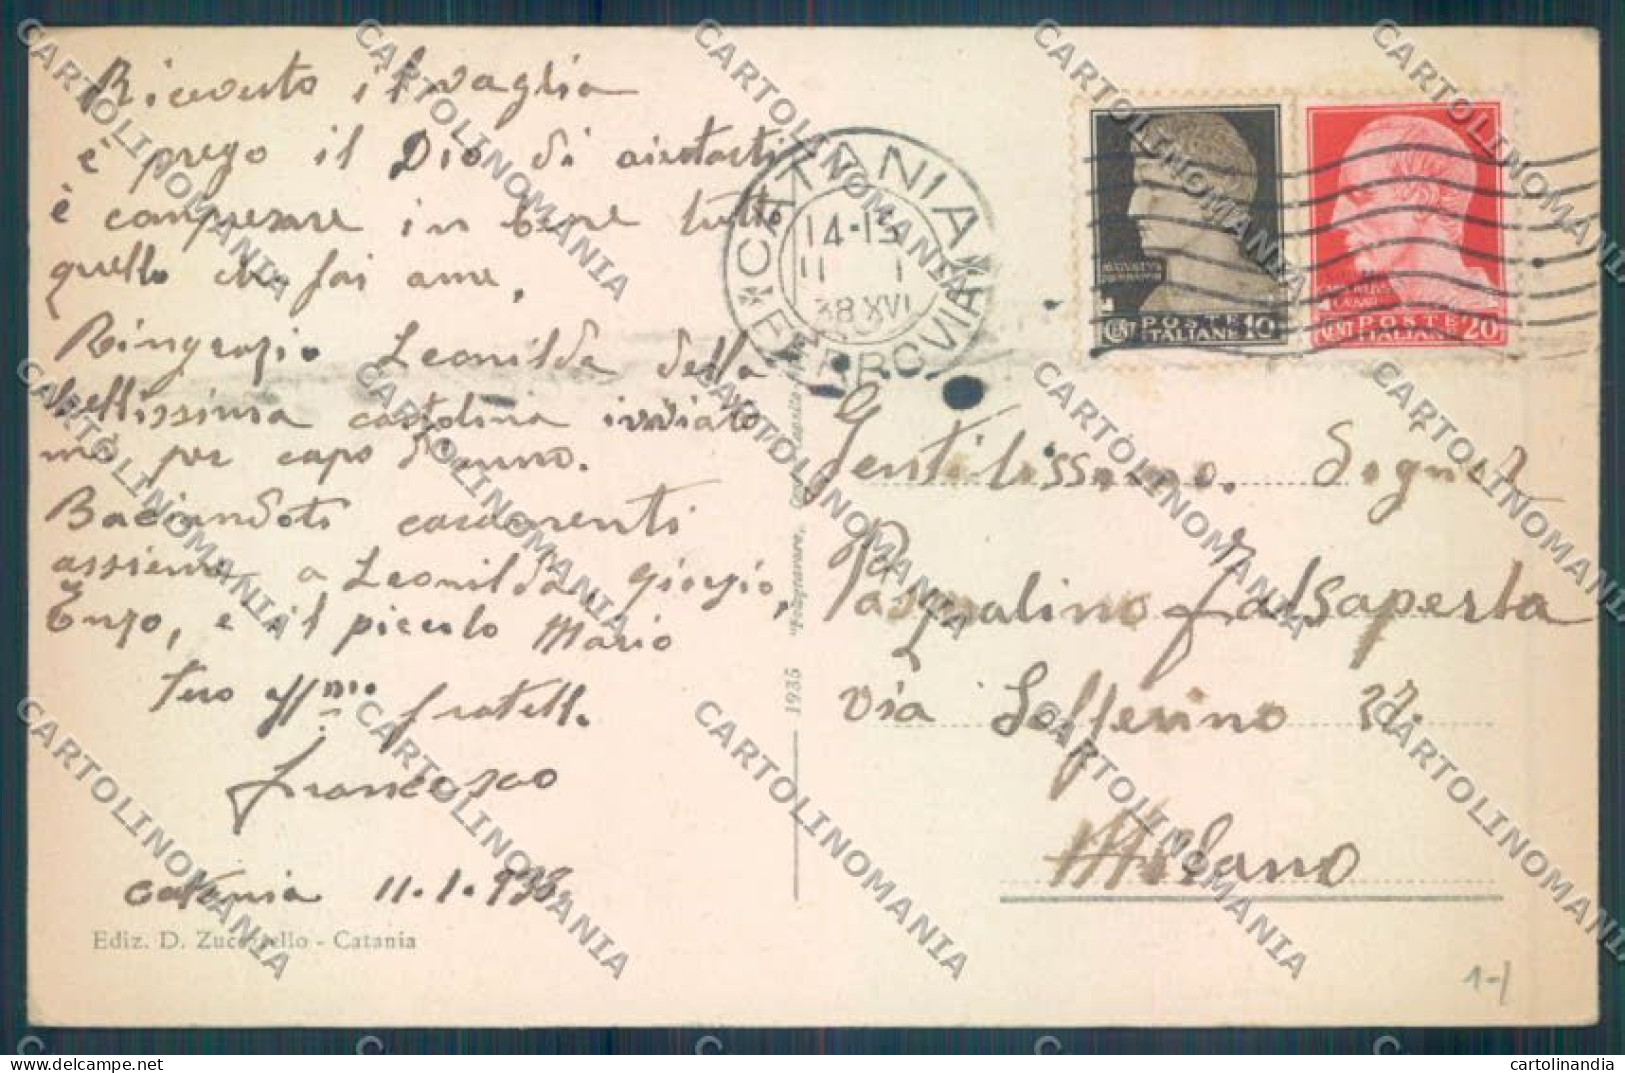 Ricevuto il vaglia
è prego il Dio di aiutarti
è compensare in bene tutto
quello che fai a me,
Ringrazio Leonilda della
bellissima cartolina inviato
mè per capo d'anno.
Baciandoti caramenti
assieme a Leonilda, Giorgio,
Enzo, e il piccolo Mario
tuo aff.mo fratello
Francesco
Catania 11.1.938.
Ediz. D. Zuccarello - Catania
1935
CATANIA
FERROVIA
14-15
11 I
38 XVI
CENT POSTE ITALIANE 10
CENT POSTE ITALIANE 20
Gentilissimo. Signor
Pasqualino Falsaperla
via Solferino 27.
Milano
1-1
CARTOLINOMANIA
cartolinandia